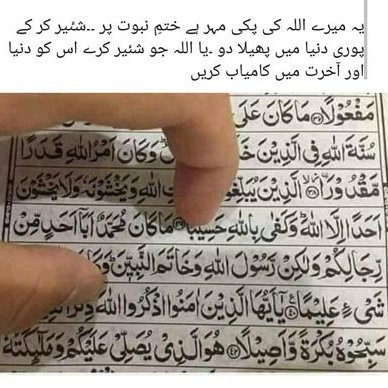 یہ میرے اللہ کی پکی مہر ہے ختمِ نبوت پر ۔۔شئیر کر کے
پوری دنیا میں پھیلا دو ۔یا اللہ جو شئیر کرے اس کو دنیا
اور آخرت میں کامیاب کریں
مَفْعُوْلًا ۳۷ مَا كَانَ عَلَى
سُنَّةَ اللّٰهِ فِى الَّذِيْنَ وَكَانَ اَمْرُ اللّٰهِ قَدَرًا
مَّقْدُوْرًا ۳۸ الَّذِيْنَ اللّٰهِ وَيَخْشَوْنَهٗ وَلَا يَخْشَوْنَ
اَحَدًا اِلَّا اللّٰهَ وَكَفٰى بِاللّٰهِ حَسِيْبًا مَا كَانَ مُحَمَّدٌ اَبَآ اَحَدٍ مِّنْ
رِّجَالِكُمْ وَلٰكِنْ رَّسُوْلَ اللّٰهِ وَخَاتَمَ النَّبِيّٖنَ
شَىْءٍ عَلِيْمًا ۴۰ يٰٓاَيُّهَا الَّذِيْنَ اٰمَنُوا اذْكُرُوا اللّٰهَ
سَبِّحُوْهُ بُكْرَةً وَّاَصِيْلًا ۴۲ هُوَ الَّذِىْ يُصَلِّىْ عَلَيْكُمْ وَمَلٰٓئِكَتُهٗ